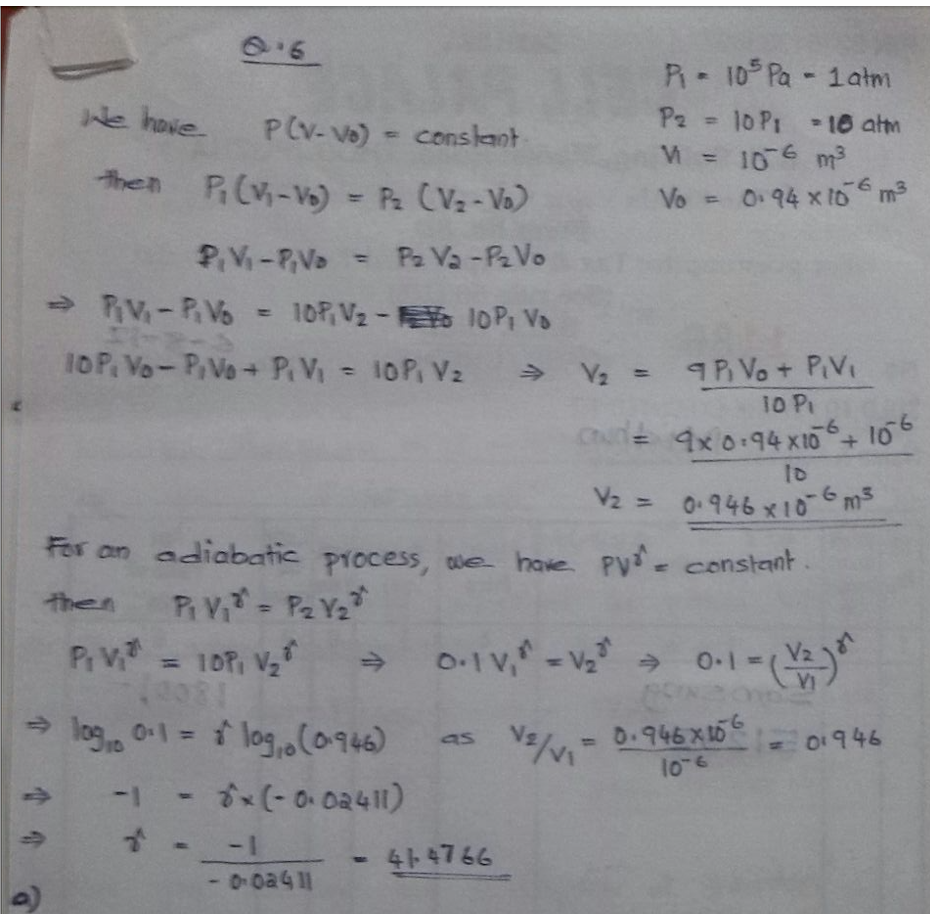 Q.6
P₁ = 10⁵ Pa = 1 atm
We have P(V-V₀) = constant.
P₂ = 10P₁ = 10 atm
V₁ = 10⁻⁶ m³
then P₁(V₁-V₀) = P₂(V₂-V₀)
V₀ = 0.94 × 10⁻⁶ m³
P₁V₁-P₁V₀ = P₂V₂-P₂V₀
⇒ P₁V₁-P₁V₀ = 10P₁V₂- 10P₁V₀
10P₁V₀-P₁V₀+P₁V₁ = 10P₁V₂ ⇒ V₂ = 9P₁V₀+P₁V₁ / 10P₁
= 9×0.94×10⁻⁶+10⁻⁶ / 10
V₂ = 0.946×10⁻⁶ m³
For an adiabatic process, we have PV^γ = constant.
then P₁V₁^γ = P₂V₂^γ
P₁V₁^γ = 10P₁V₂^γ ⇒ 0.1V₁^γ = V₂^γ ⇒ 0.1 = (V₂/V₁)^γ
⇒ log₁₀ 0.1 = γ log₁₀(0.946) as V₂/V₁ = 0.946×10⁻⁶ / 10⁻⁶ = 0.946
⇒ -1 = γ×(-0.02411)
⇒ γ = -1 / -0.02411 = 41.4766
a)